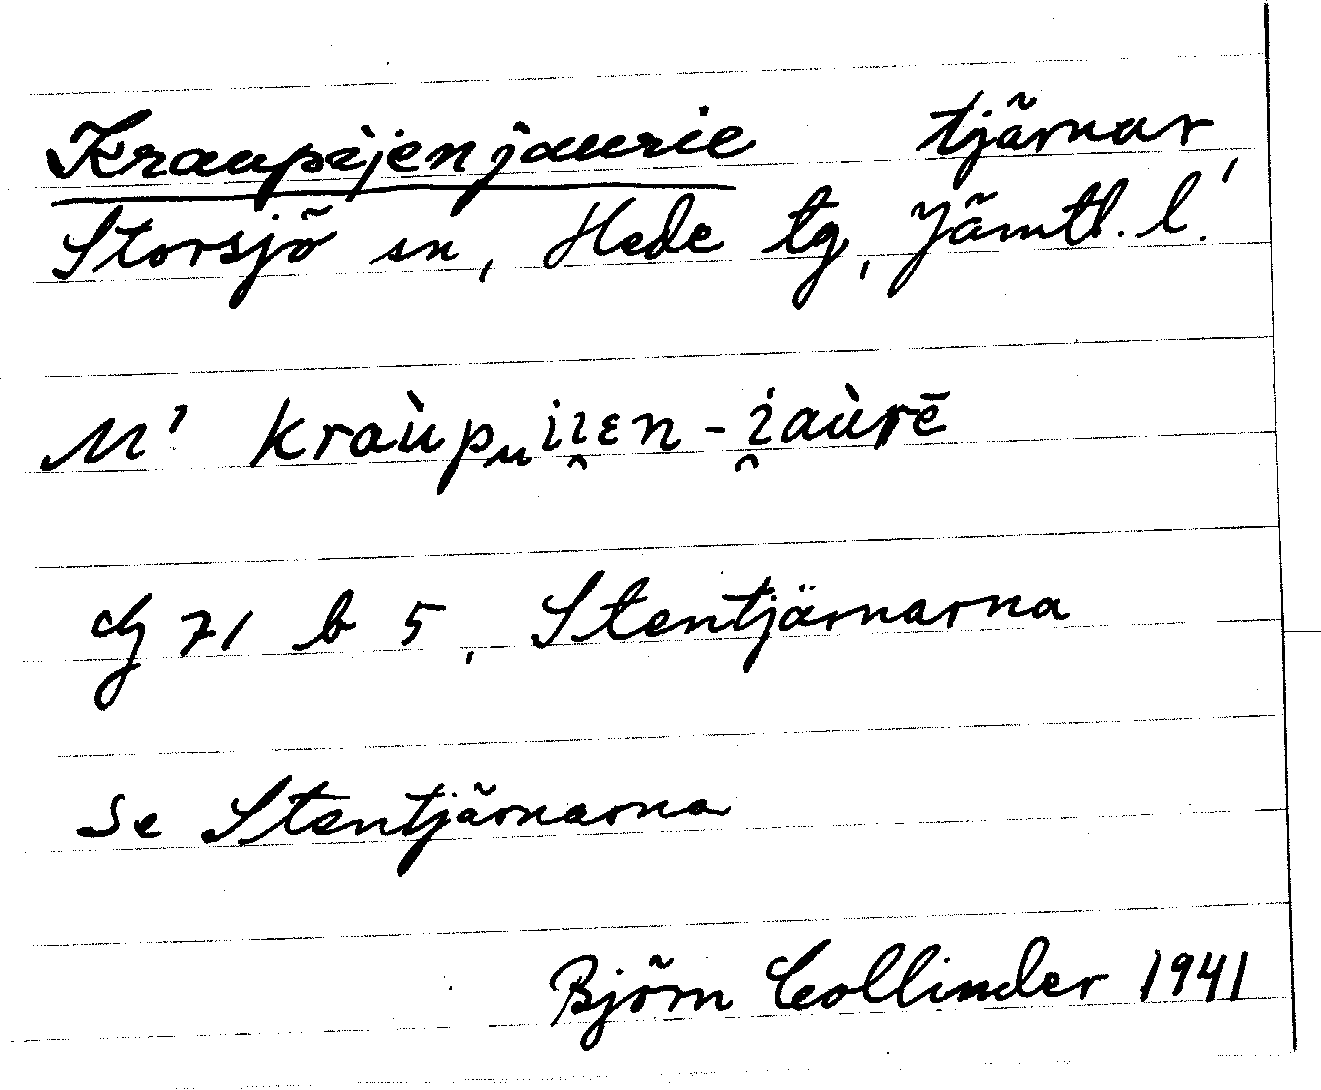 Kraupejenjaurie tjärnar,
Storsjö sn, Hede tg, Jämtl. l.
M' kraùpᵤii̯ɛn-i̯aùrē
G 71 b 5, Stentjärnarna
Se Stentjärnarna
Björn Collinder 1941